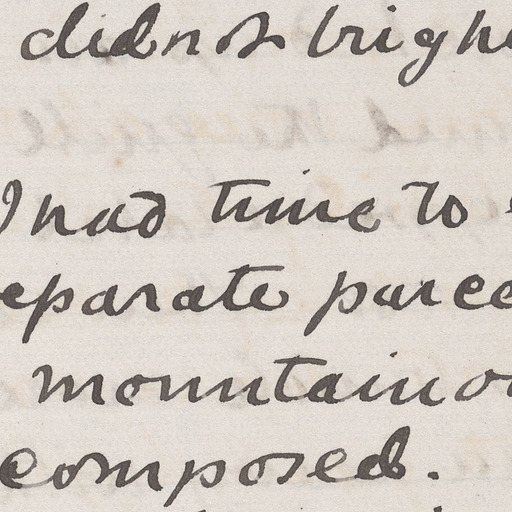 did not brigh
I had time to
eparate parce
mountain o
composed.